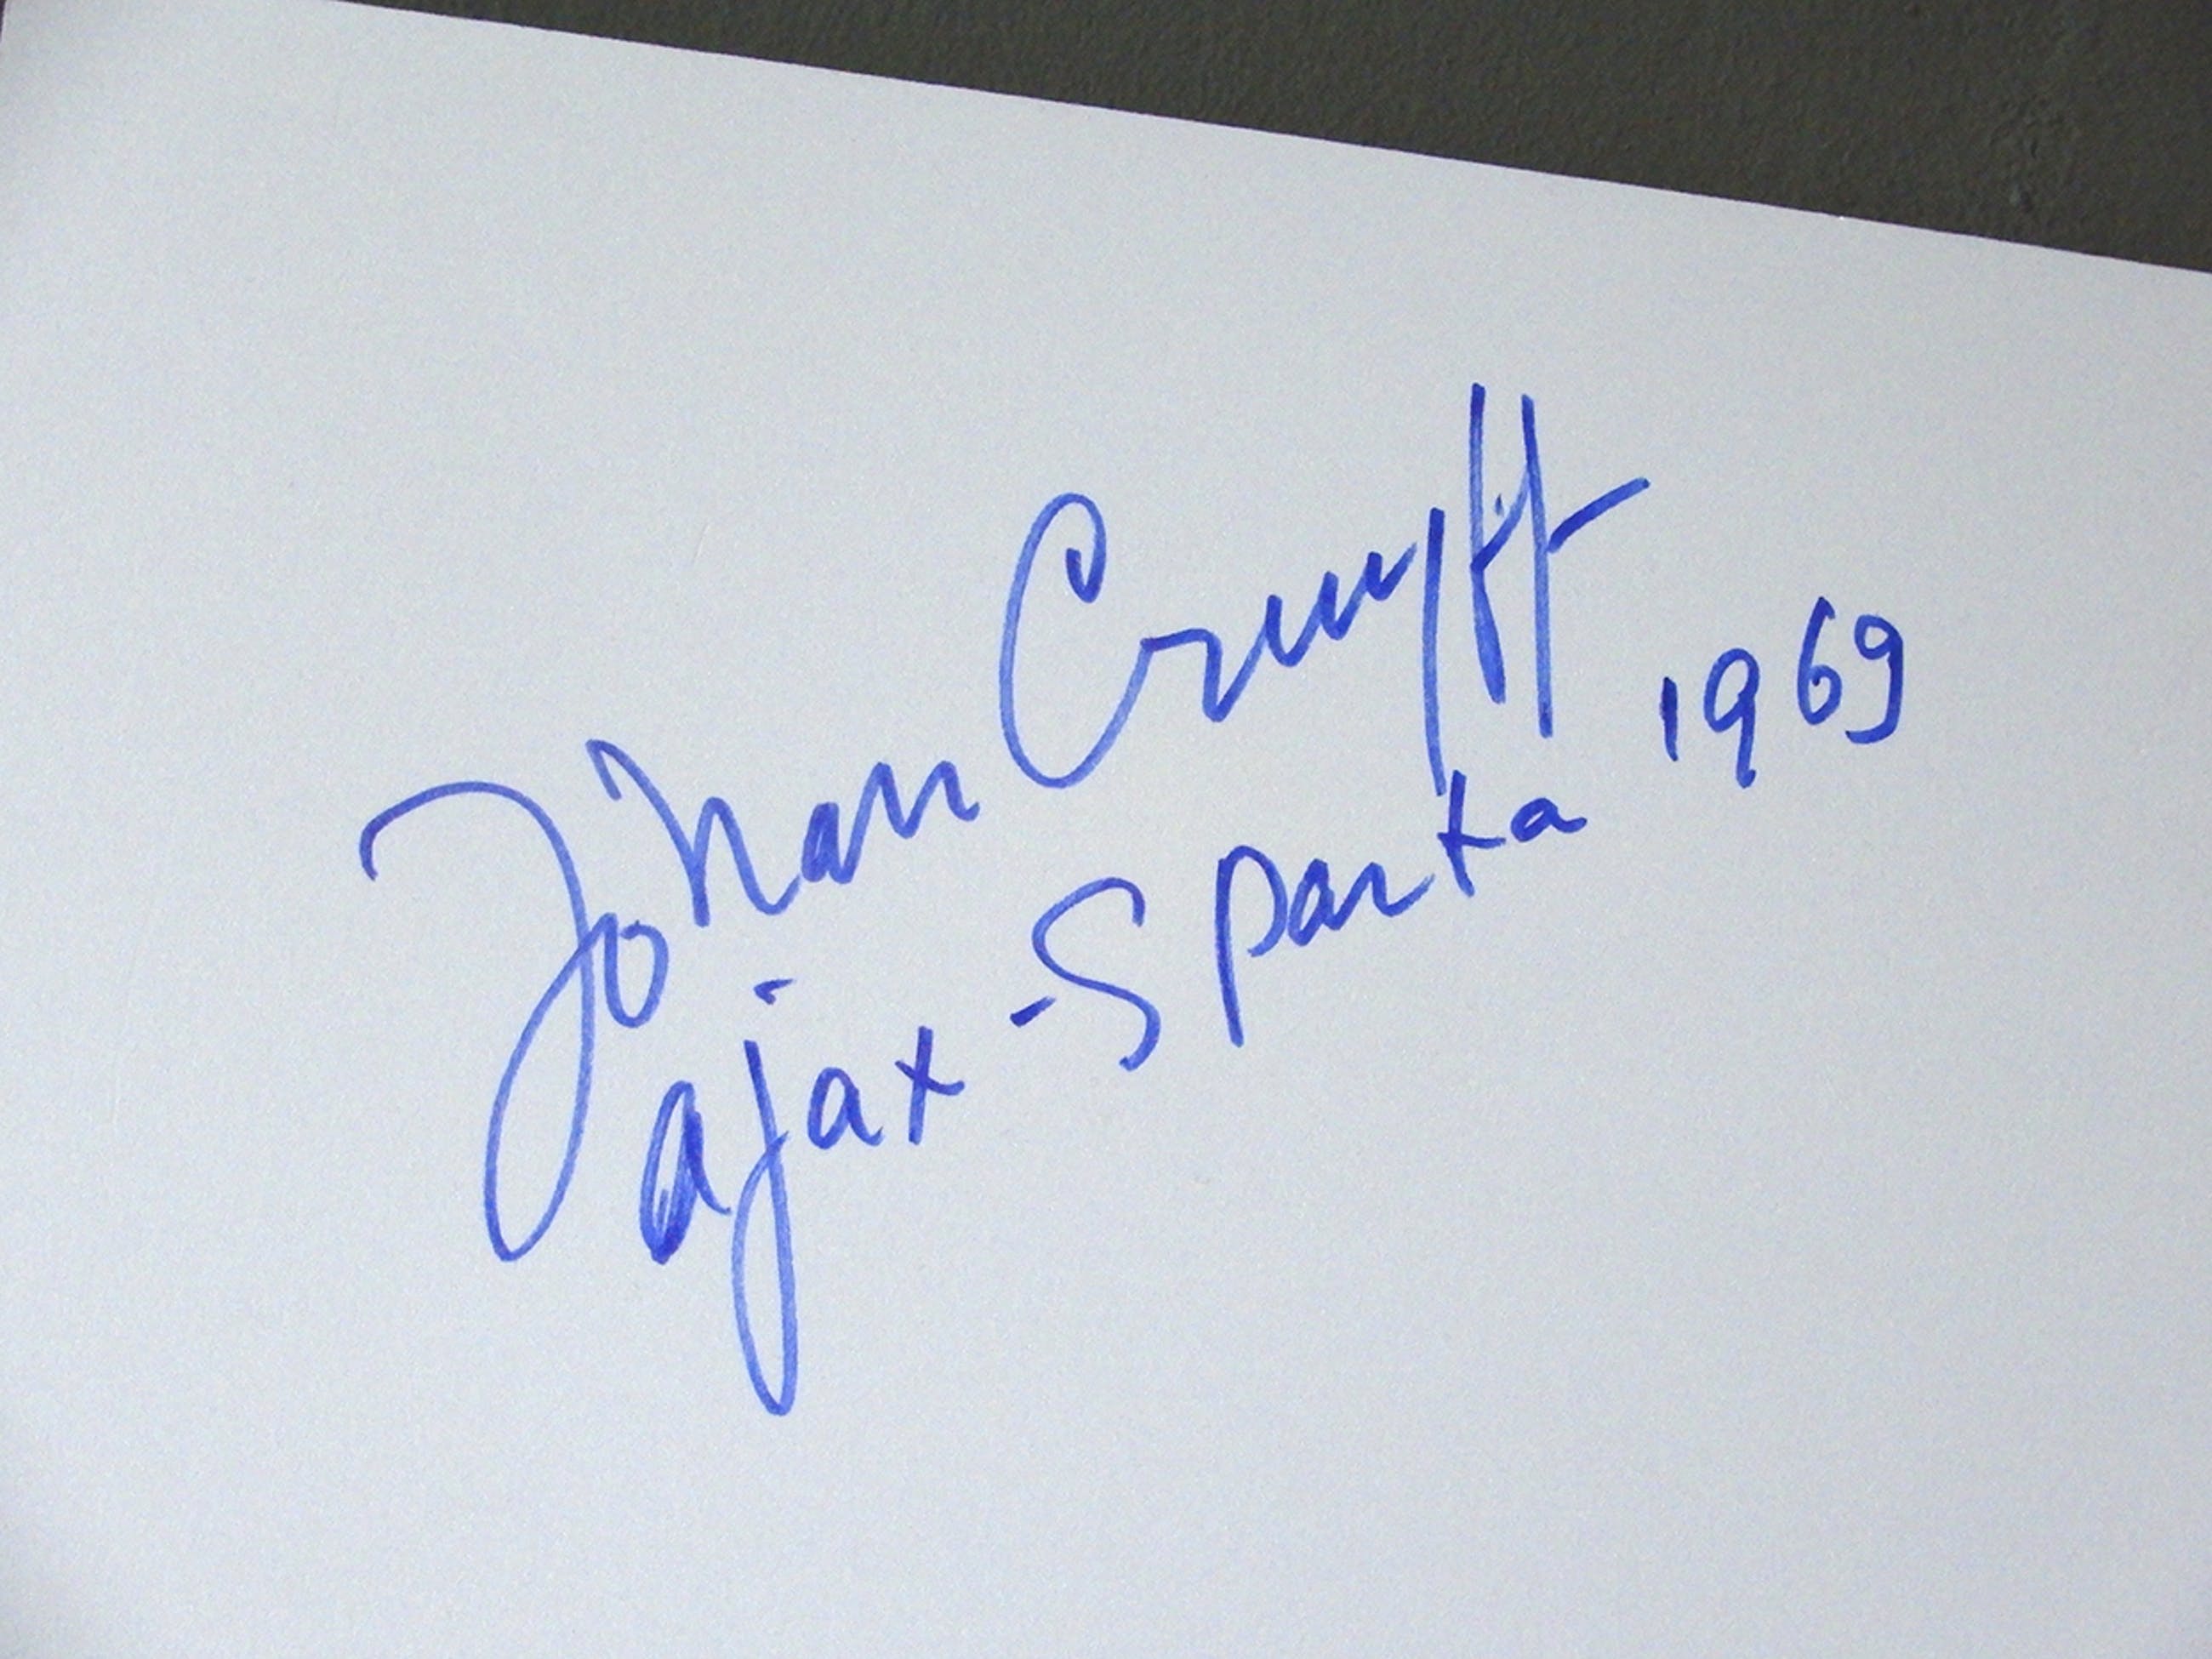 Johan Cruyff
ajax - Sparta 1969